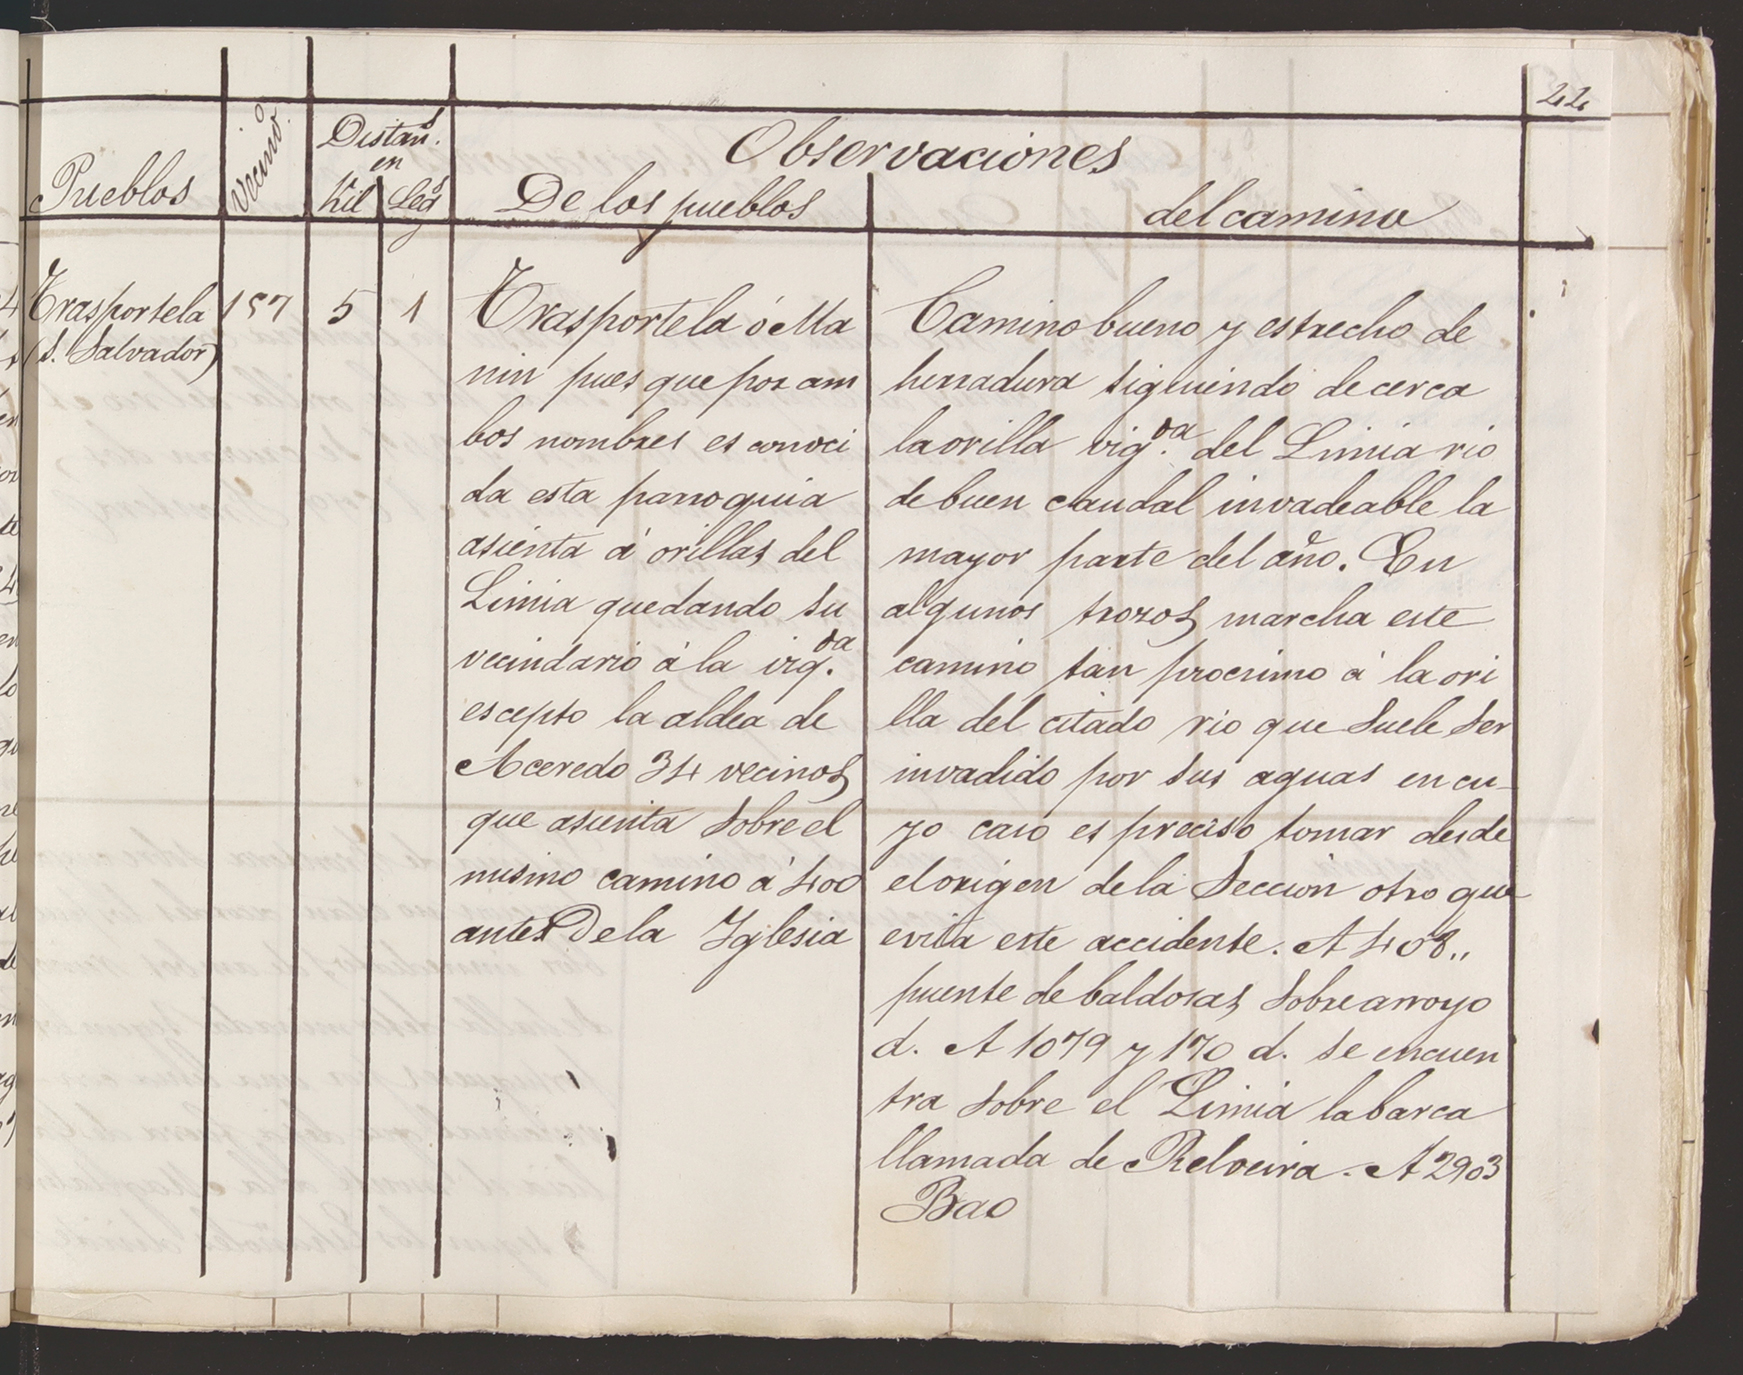 22
Pueblos
Vecino.º
Distan.s
en
Kil.s
Leg.s
Observaciones
De los pueblos
del camino
Trasportela
(S. Salvador)
157
5
1
Trasportela ó Ma
nin pues que por am
bos nombres es conoci
da esta parroquia
asienta á orillas del
Limia quedando su
vecindario á la izq.da
escepto la aldea de
Aceredo 34 vecinos
que asienta sobre el
mismo camino á 400
antes De la Iglesia
Camino bueno y estrecho de
herradura siguiendo de cerca
la orilla izq.da del Limia rio
de buen caudal invadeable la
mayor parte del año. En
algunos trozos marcha este
camino tan procsimo á la ori
lla del citado rio que suele ser
invadido por sus aguas en cu-
yo caso es preciso tomar desde
el origen de la Seccion otro que
evita este accidente. A 408,,
puente de baldosas sobre arroyo
d. A 1079 y 170 d. se encuen
tra sobre el Limia la barca
llamada de Reloeira. A 2903
Bao